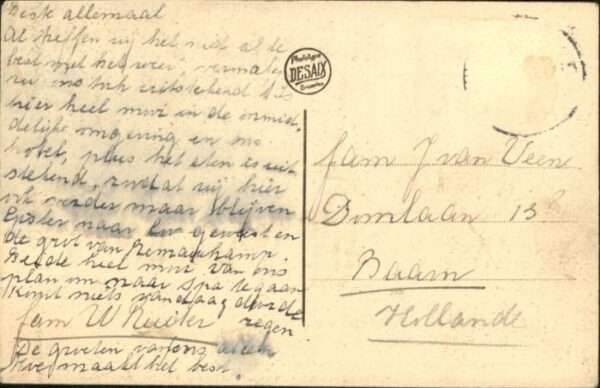 Beste allemaal
Al treffen wij het niet al te
best met het weer, vermaken
we ons toch uitstekend. 't is
hier heel mooi in de onmid-
delijke omgeving en ons
hotel, plus het eten is uit-
stekend, zodat wij hier
ook verder maar blijven
Gister naar geweest en
de grot van Remouchamp.
Beide heel mooi van ons
plan om naar Spa te gaan
komt niets vandaag door de
regen
fam W Ruiter
De groeten van ons allen
Hoe maakt het best.
Phototypie
DESAIX
Bruxelles
fam J van Veen
Domlaan 13
Baarn
Hollande